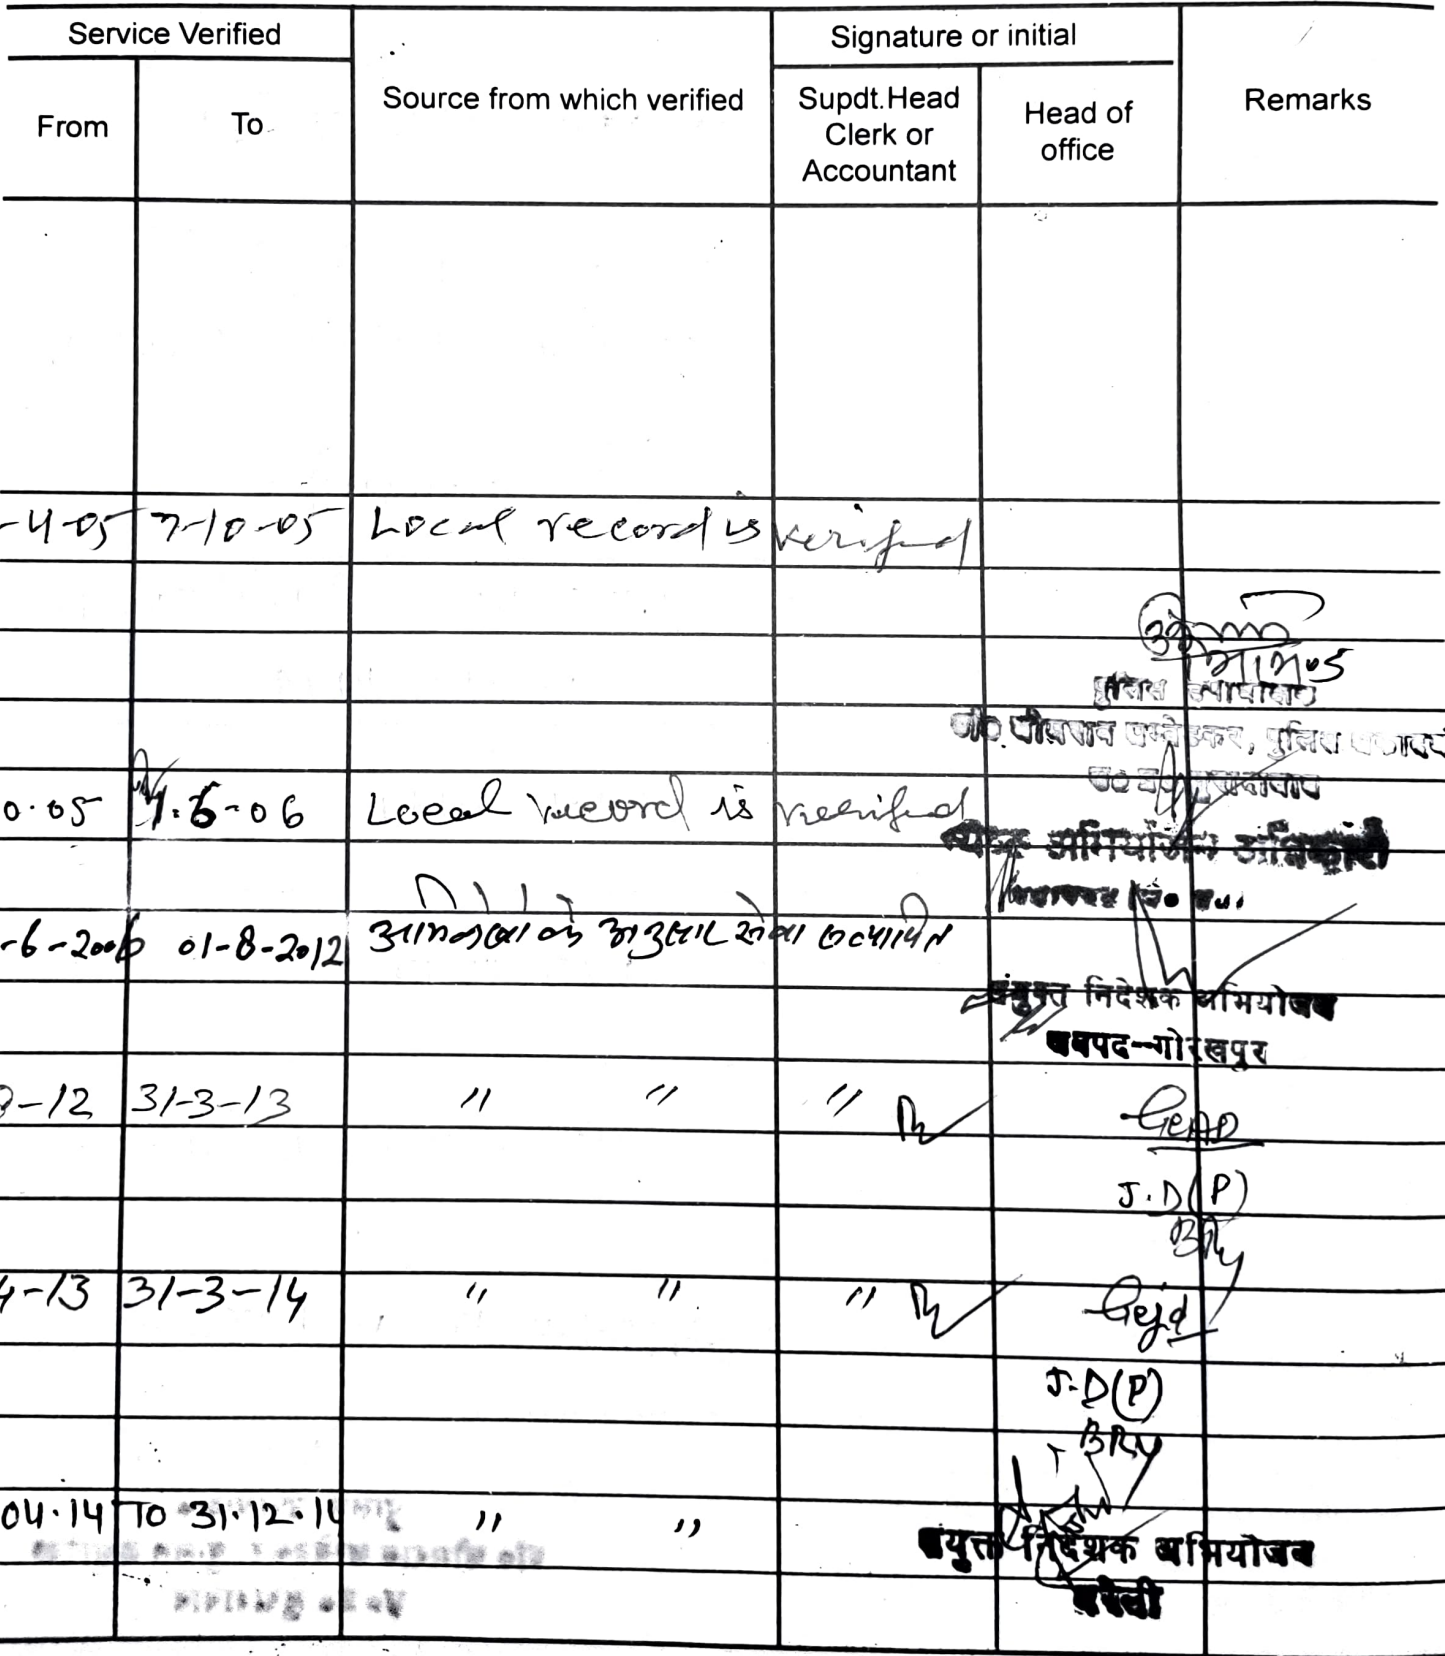 Service Verified
Signature or initial
From
To
Source from which verified
Supdt.Head
Clerk or
Accountant
Head of
office
Remarks
-4-05 7-10-05 Local record is verified
0.05 1.6-06 Local record is verified
अभियोजन अधिकारी
-6-2006 01-8-2012 अभिलेखों के अनुसार सेवा सत्यापित
संयुक्त निदेशक अभियोजन
जनपद-गोरखपुर
-12 31-3-13 " " "
J.D(P)
BRY
4-13 31-3-14 " " "
J.D(P)
BRY
04.14 TO 31.12.14 " "
संयुक्त निदेशक अभियोजन
बरेली